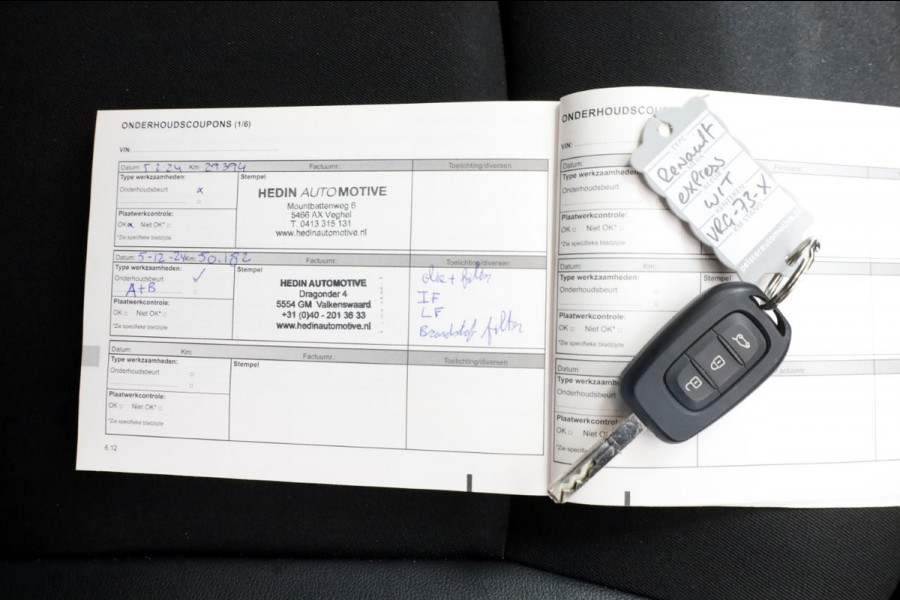 ONDERHOUDSCOUPONS (1/6)
VIN:
Datum: 5-2-24 Km: 29394 Factuurnr.: Toelichting/diversen
Type werkzaamheden: Stempel
Onderhoudsbeurt x
HEDIN AUTOMOTIVE
Mountbattenweg 6
5466 AX Veghel
T. 0413 315 131
www.hedinautomotive.nl
Plaatwerkcontrole:
OK x Niet OK*
*Zie specifieke bladzijde
Datum: 5-12-24 Km: 50.182 Factuurnr.: Toelichting/diversen
Type werkzaamheden: Stempel
Onderhoudsbeurt ✓
A+B
HEDIN AUTOMOTIVE
Dragonder 4
5554 GM Valkenswaard
+31 (0)40 - 201 36 33
www.hedinautomotive.nl
olie + filter
IF
LF
Brandstof filter
Plaatwerkcontrole:
OK Niet OK*
*Zie specifieke bladzijde
Datum: Km: Factuurnr.: Toelichting/diversen
Type werkzaamheden: Stempel
Onderhoudsbeurt
Plaatwerkcontrole:
OK Niet OK*
*Zie specifieke bladzijde
6.12
ONDERHOUDSCOU
VIN:
Datum: Factuurnr.:
Type werkzaamheden:
Onderhoudsbeurt
Plaatwerkcontrole:
OK Niet OK*
*Zie specifieke bladzijde
Datum:
Type werkzaamheden: Stempel
Onderhoudsbeurt
Plaatwerkcontrole:
OK Niet OK*
*Zie specifieke bladzijde
Datum: Factuurnr.:
Type werkzaamh
Onderhoudsbeurt
Plaatwerkcontrol
OK Niet OK
*Zie specifieke bladzijde
Renault
express
WIT
VRG-73-X